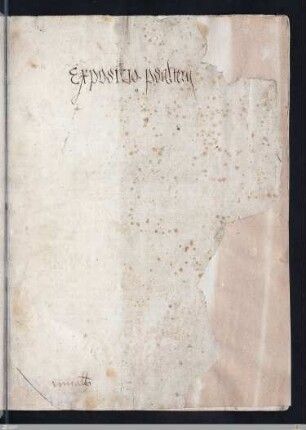 Expositio psalterij